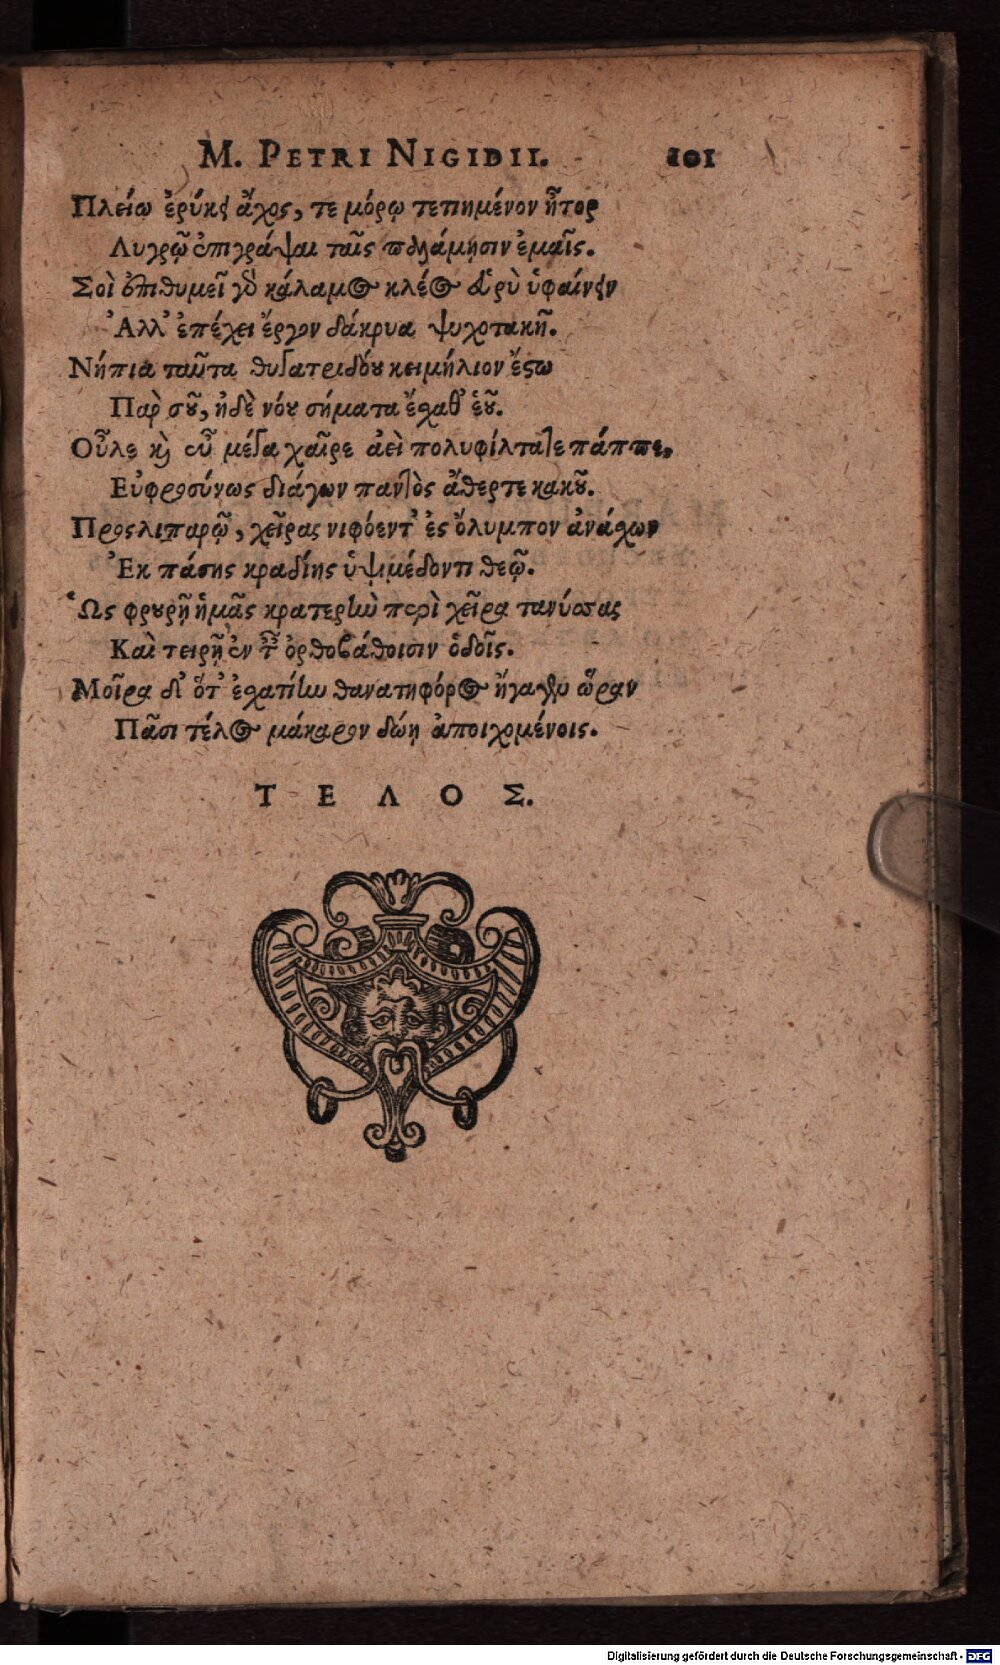 M. PETRI NIGIDII. 101
Πλείω ἐρύκει ἄχος, τε μόρῳ τετιημένον ἦτορ
Λυγρῷ ἐπιγράψαι ταῖς παλάμῃσιν ἐμαῖς.
Σοὶ ἐπιθυμεῖ γὰρ κάλαμος κλέος εὐρὺ ὑφαίνειν
Ἀλλ' ἐπέχει ἔργον δάκρυα ψυχοτακῆ.
Νήπια ταῦτα θυγατριδοῦ κειμήλιον ἔστω
Παρ σοῦ, ἠδὲ νόου σήματα ἔχαθ' ἑοῦ.
Οὖλε καὶ εὖ μέγα χαῖρε ἀεὶ πολυφίλτατε πάππε,
Εὐφροσύνως διάγων παντὸς ἄθερτε κακοῦ.
Προςλιπαρῶ, χεῖρας νιφόεντ' ἐς ὄλυμπον ἀνάχων
Ἐκ πάσης κραδίης ὑψιμέδοντι θεῷ.
Ὡς φρουρῇ ἡμᾶς κρατερὴν περὶ χεῖρα τανύσσας
Καὶ τειρῇ ἐν ταῖς ὀρθοβάθοισιν ὁδοῖς.
Μοῖρα δι' ὅτ' ἐχατίην θανατηφόρος ἤγαγεν ὥραν
Πᾶσι τέλος μάκαρον δώῃ ἀποιχομένοις.
Τ Ε Λ Ο Σ.
Digitalisierung gefördert durch die Deutsche Forschungsgemeinschaft - DFG